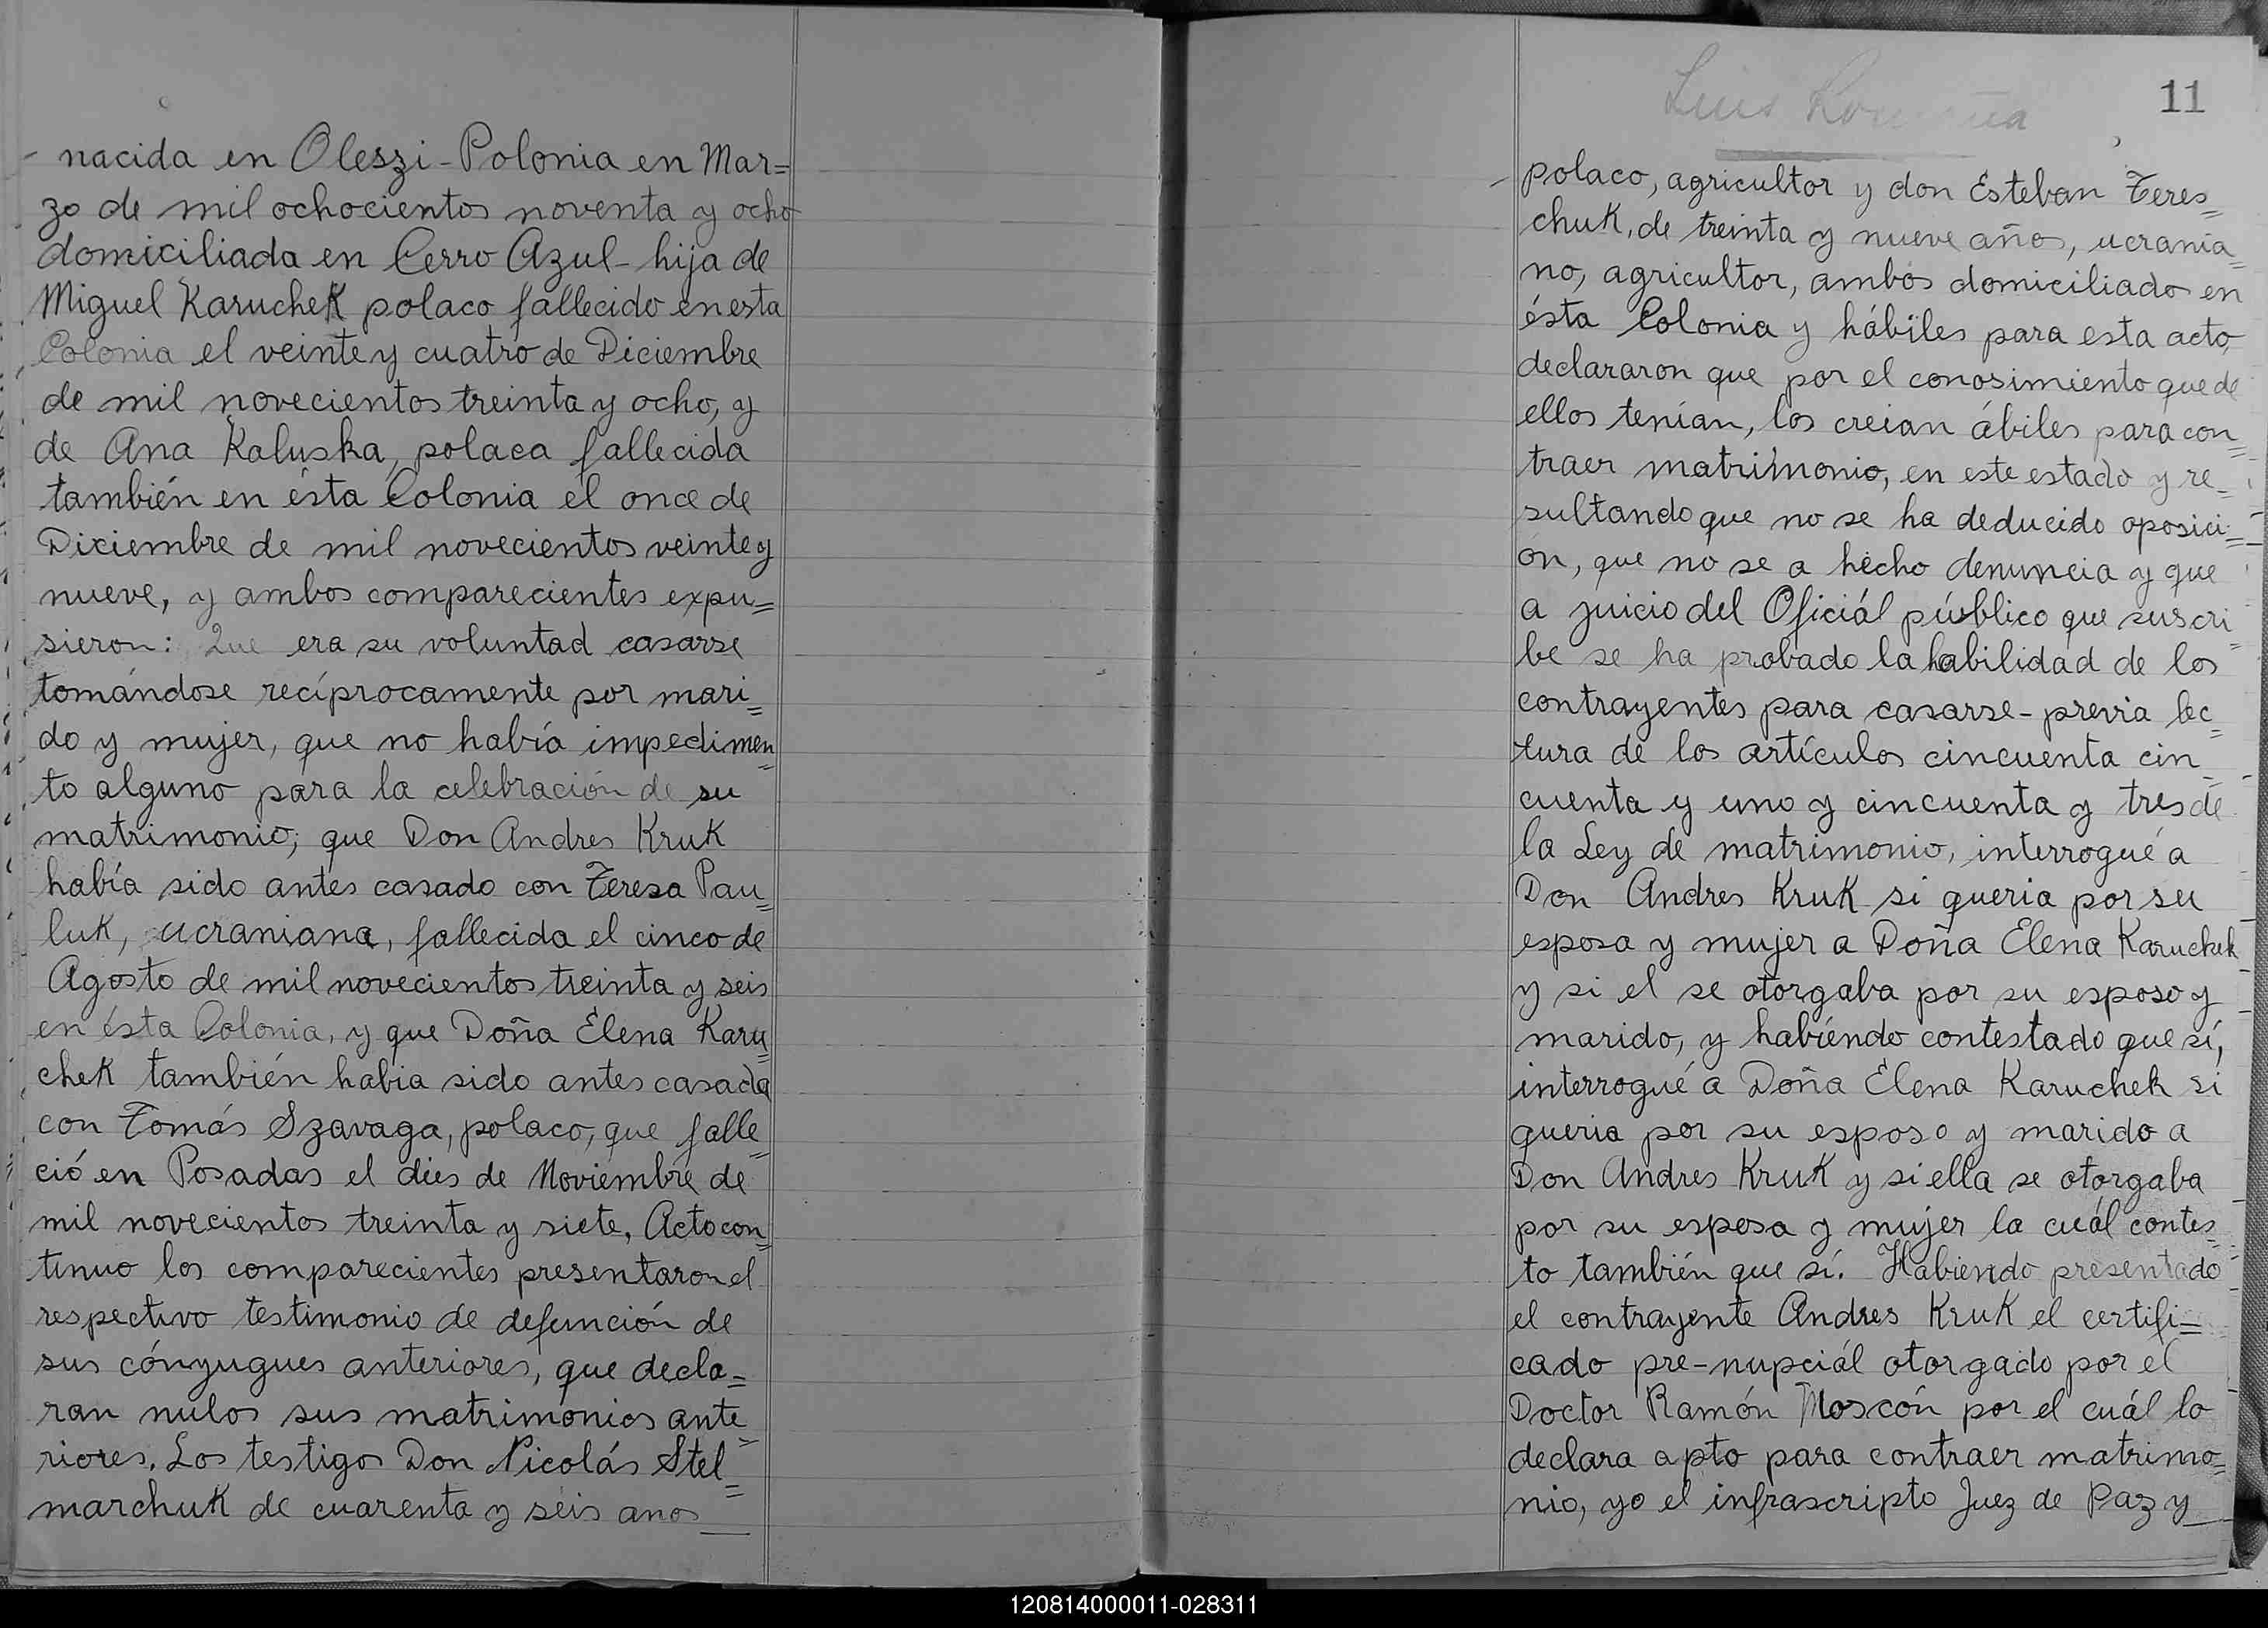 nacida en Oleszi-Polonia en Mar=
zo de mil ochocientos noventa y ocho
domiciliada en Cerro Azul- hija de
Miguel Karuchek polaco fallecido en esta
Colonia el veinte y cuatro de Diciembre
de mil novecientos treinta y ocho, y
de Ana Kaluska, polaca fallecida
también en ésta Colonia el once de
Diciembre de mil novecientos veinte y
nueve, y ambos comparecientes expu=
sieron: Que era su voluntad casarse
tomándose recíprocamente por mari=
do y mujer, que no había impedimen=
to alguno para la celebración de su
matrimonio; que Don Andres Kruk
había sido antes casado con Teresa Pau=
luk, ucraniana, fallecida el cinco de
Agosto de mil novecientos treinta y seis
en ésta Colonia, y que Doña Elena Karu=
chek también habia sido antes casada
con Tomás Szavaga, polaco, que falle=
ció en Posadas el dies de Noviembre de
mil novecientos treinta y siete, Acto con=
tinuo los comparecientes presentaron el
respectivo testimonio de defunción de
sus cónyugues anteriores, que decla=
ran nulos sus matrimonios ante=
riores. Los testigos Don Nicolás Stel=
marchuk de cuarenta y seis anos
Luis
11
polaco, agricultor y don Esteban Teres=
chuk, de treinta y nueve años, ucrania=
no, agricultor, ambos domiciliado en
ésta Colonia y hábiles para esta acto,
declararon que por el conosimiento que de
ellos tenían, los creian ábiles para con=
traer matrimonio, en este estado y re=
sultando que no se ha deducido oposici=
ón, que no se a hecho denuncia y que
a juicio del Oficiál público que suscri=
be se ha probado la habilidad de los
contrayentes para casarse-previa lec=
tura de los artículos cincuenta cin=
cuenta y uno y cincuenta y tres de
la Ley de matrimonio, interrogué a
Don Andres Kruk si queria por su
esposa y mujer a Doña Elena Karuchek
y si el se otorgaba por su esposo y
marido, y habiéndo contestado que sí,
interrogué a Doña Elena Karuchek si
queria por su esposo y marido a
Don Andres Kruk y si ella se otorgaba
por su esposa y mujer la cuál contes=
to también que sí. Habiendo presentado
el contrayente Andres Kruk el certifi=
cado pre-nupciál otorgado por el
Doctor Ramón Moscón por el cuál lo
declara apto para contraer matrimo=
nio, yo el infrascripto Juez de Paz y
120814000011-028311